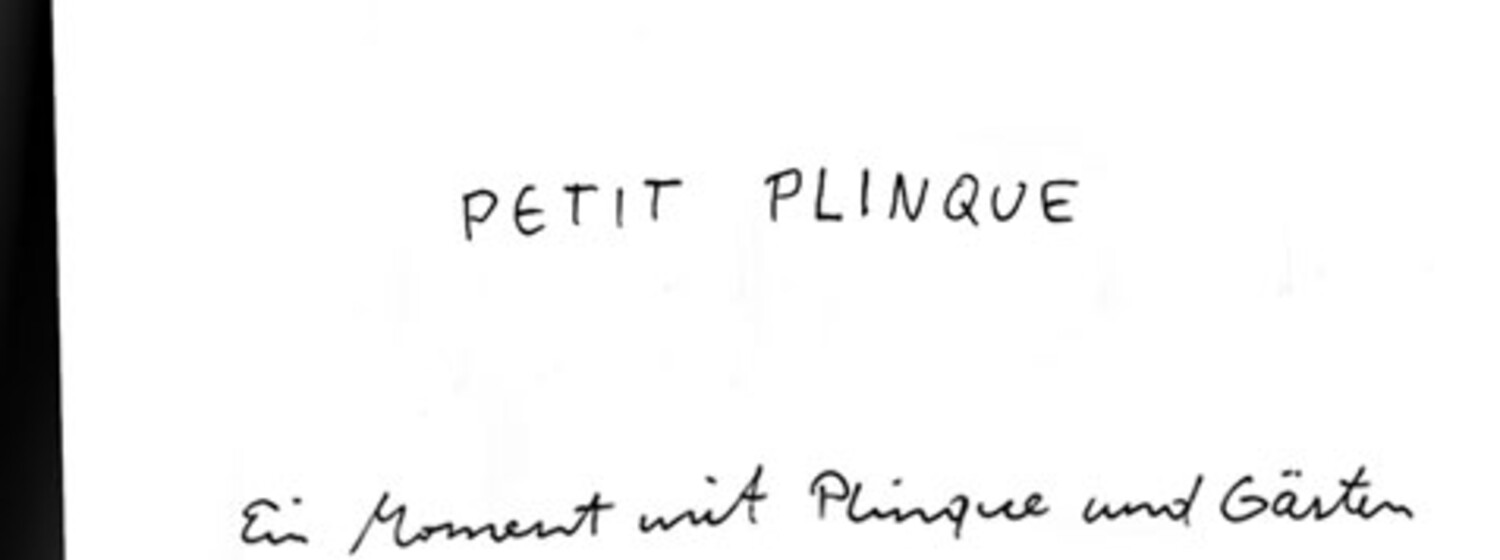 PETIT PLINQUE
Ein Moment mit Plinque und Gästen